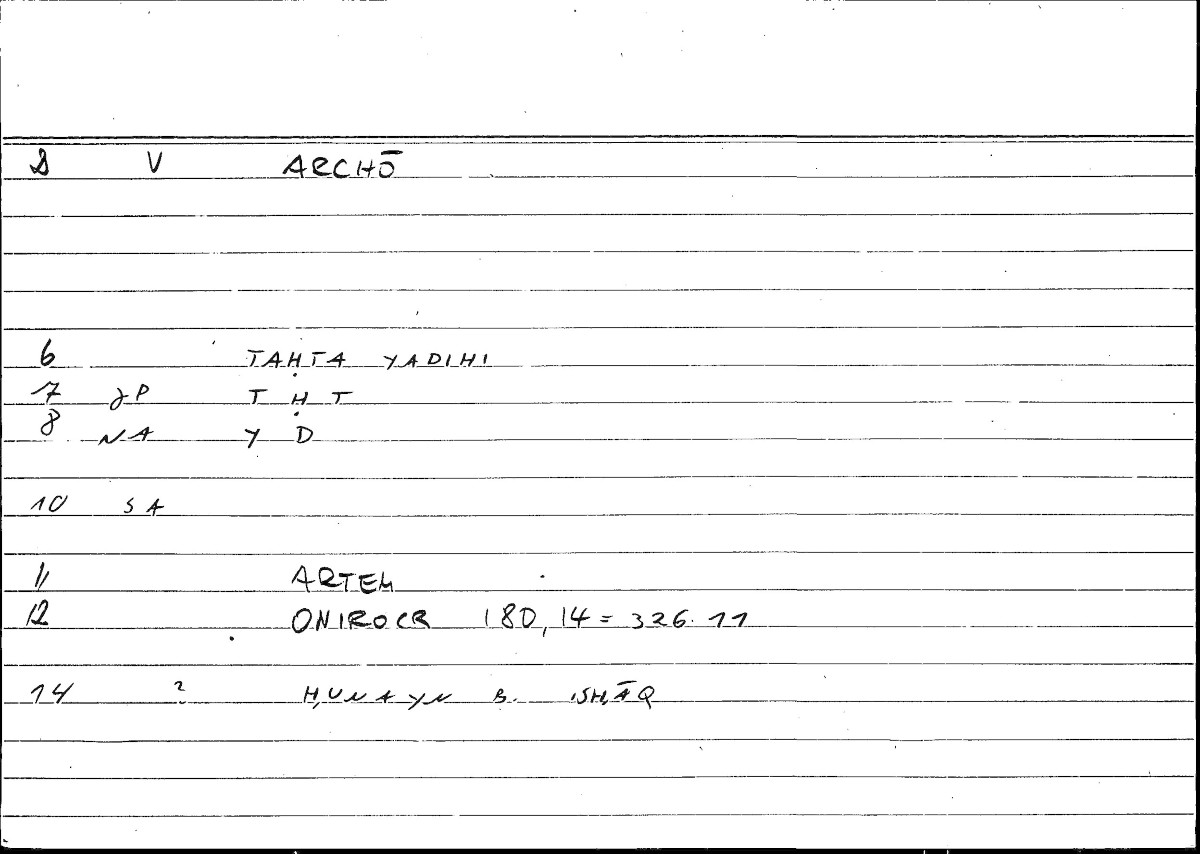 V ARCHŌ
6 TAḤTA YADIHI
7 P T Ḥ T
8 NA Y D
10 SA
11 ARTEM
12 ONIROCR 180,14 = 326.11
14 ? ḤUNAYN B. ISḤĀQ